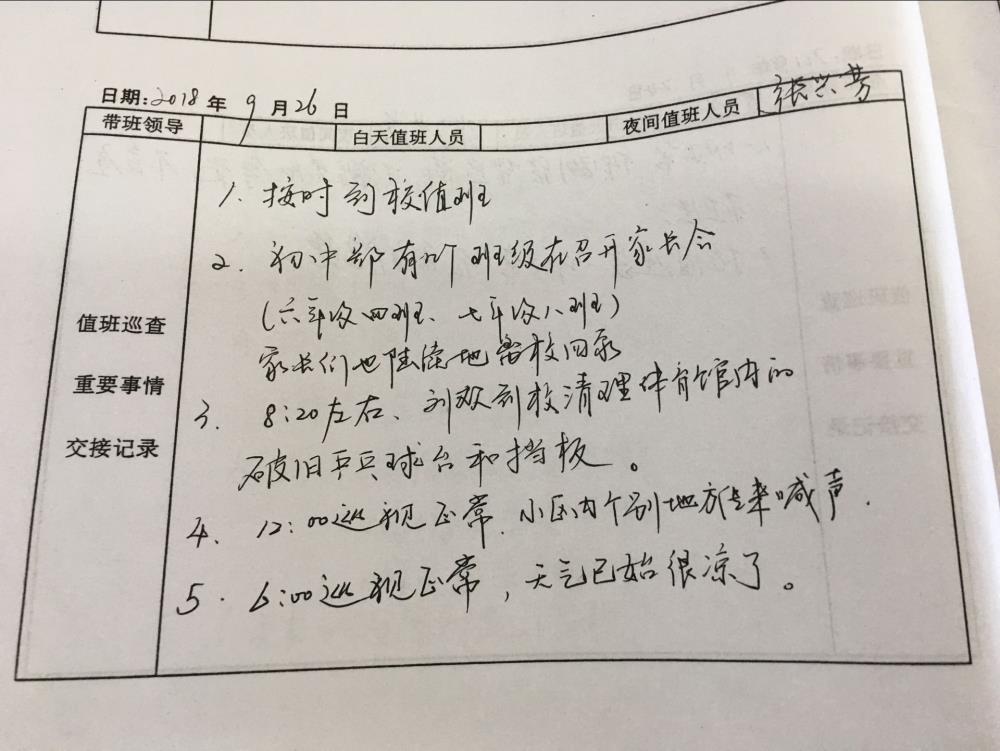 日期:2018年9月26日
带班领导 白天值班人员 夜间值班人员 张兴芳
值班巡查
重要事情
交接记录
1. 按时到校值班
2. 初中部有两个班级在召开家长会
(六年级四班、七年级八班)
家长们也陆续地离校回家
3. 8:20左右、刘欢到校清理体育馆内的
破旧乒乓球台和挡板。
4. 12:00巡视正常.小区内个别地方传来喊声.
5. 6:00巡视正常,天气已始很凉了。